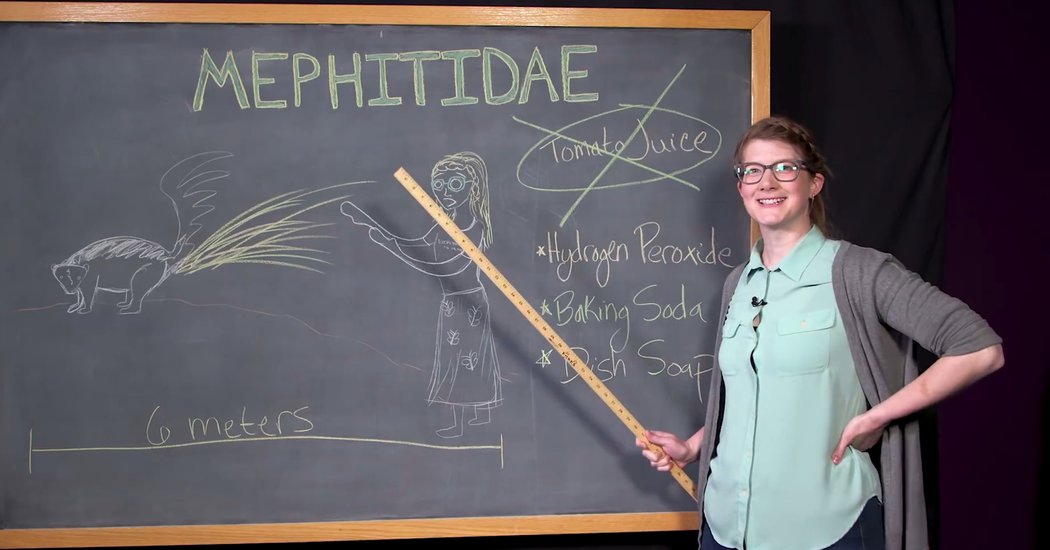 MEPHITIDAE
Tomato Juice
*Hydrogen Peroxide
*Baking Soda
*Dish Soap
6 meters